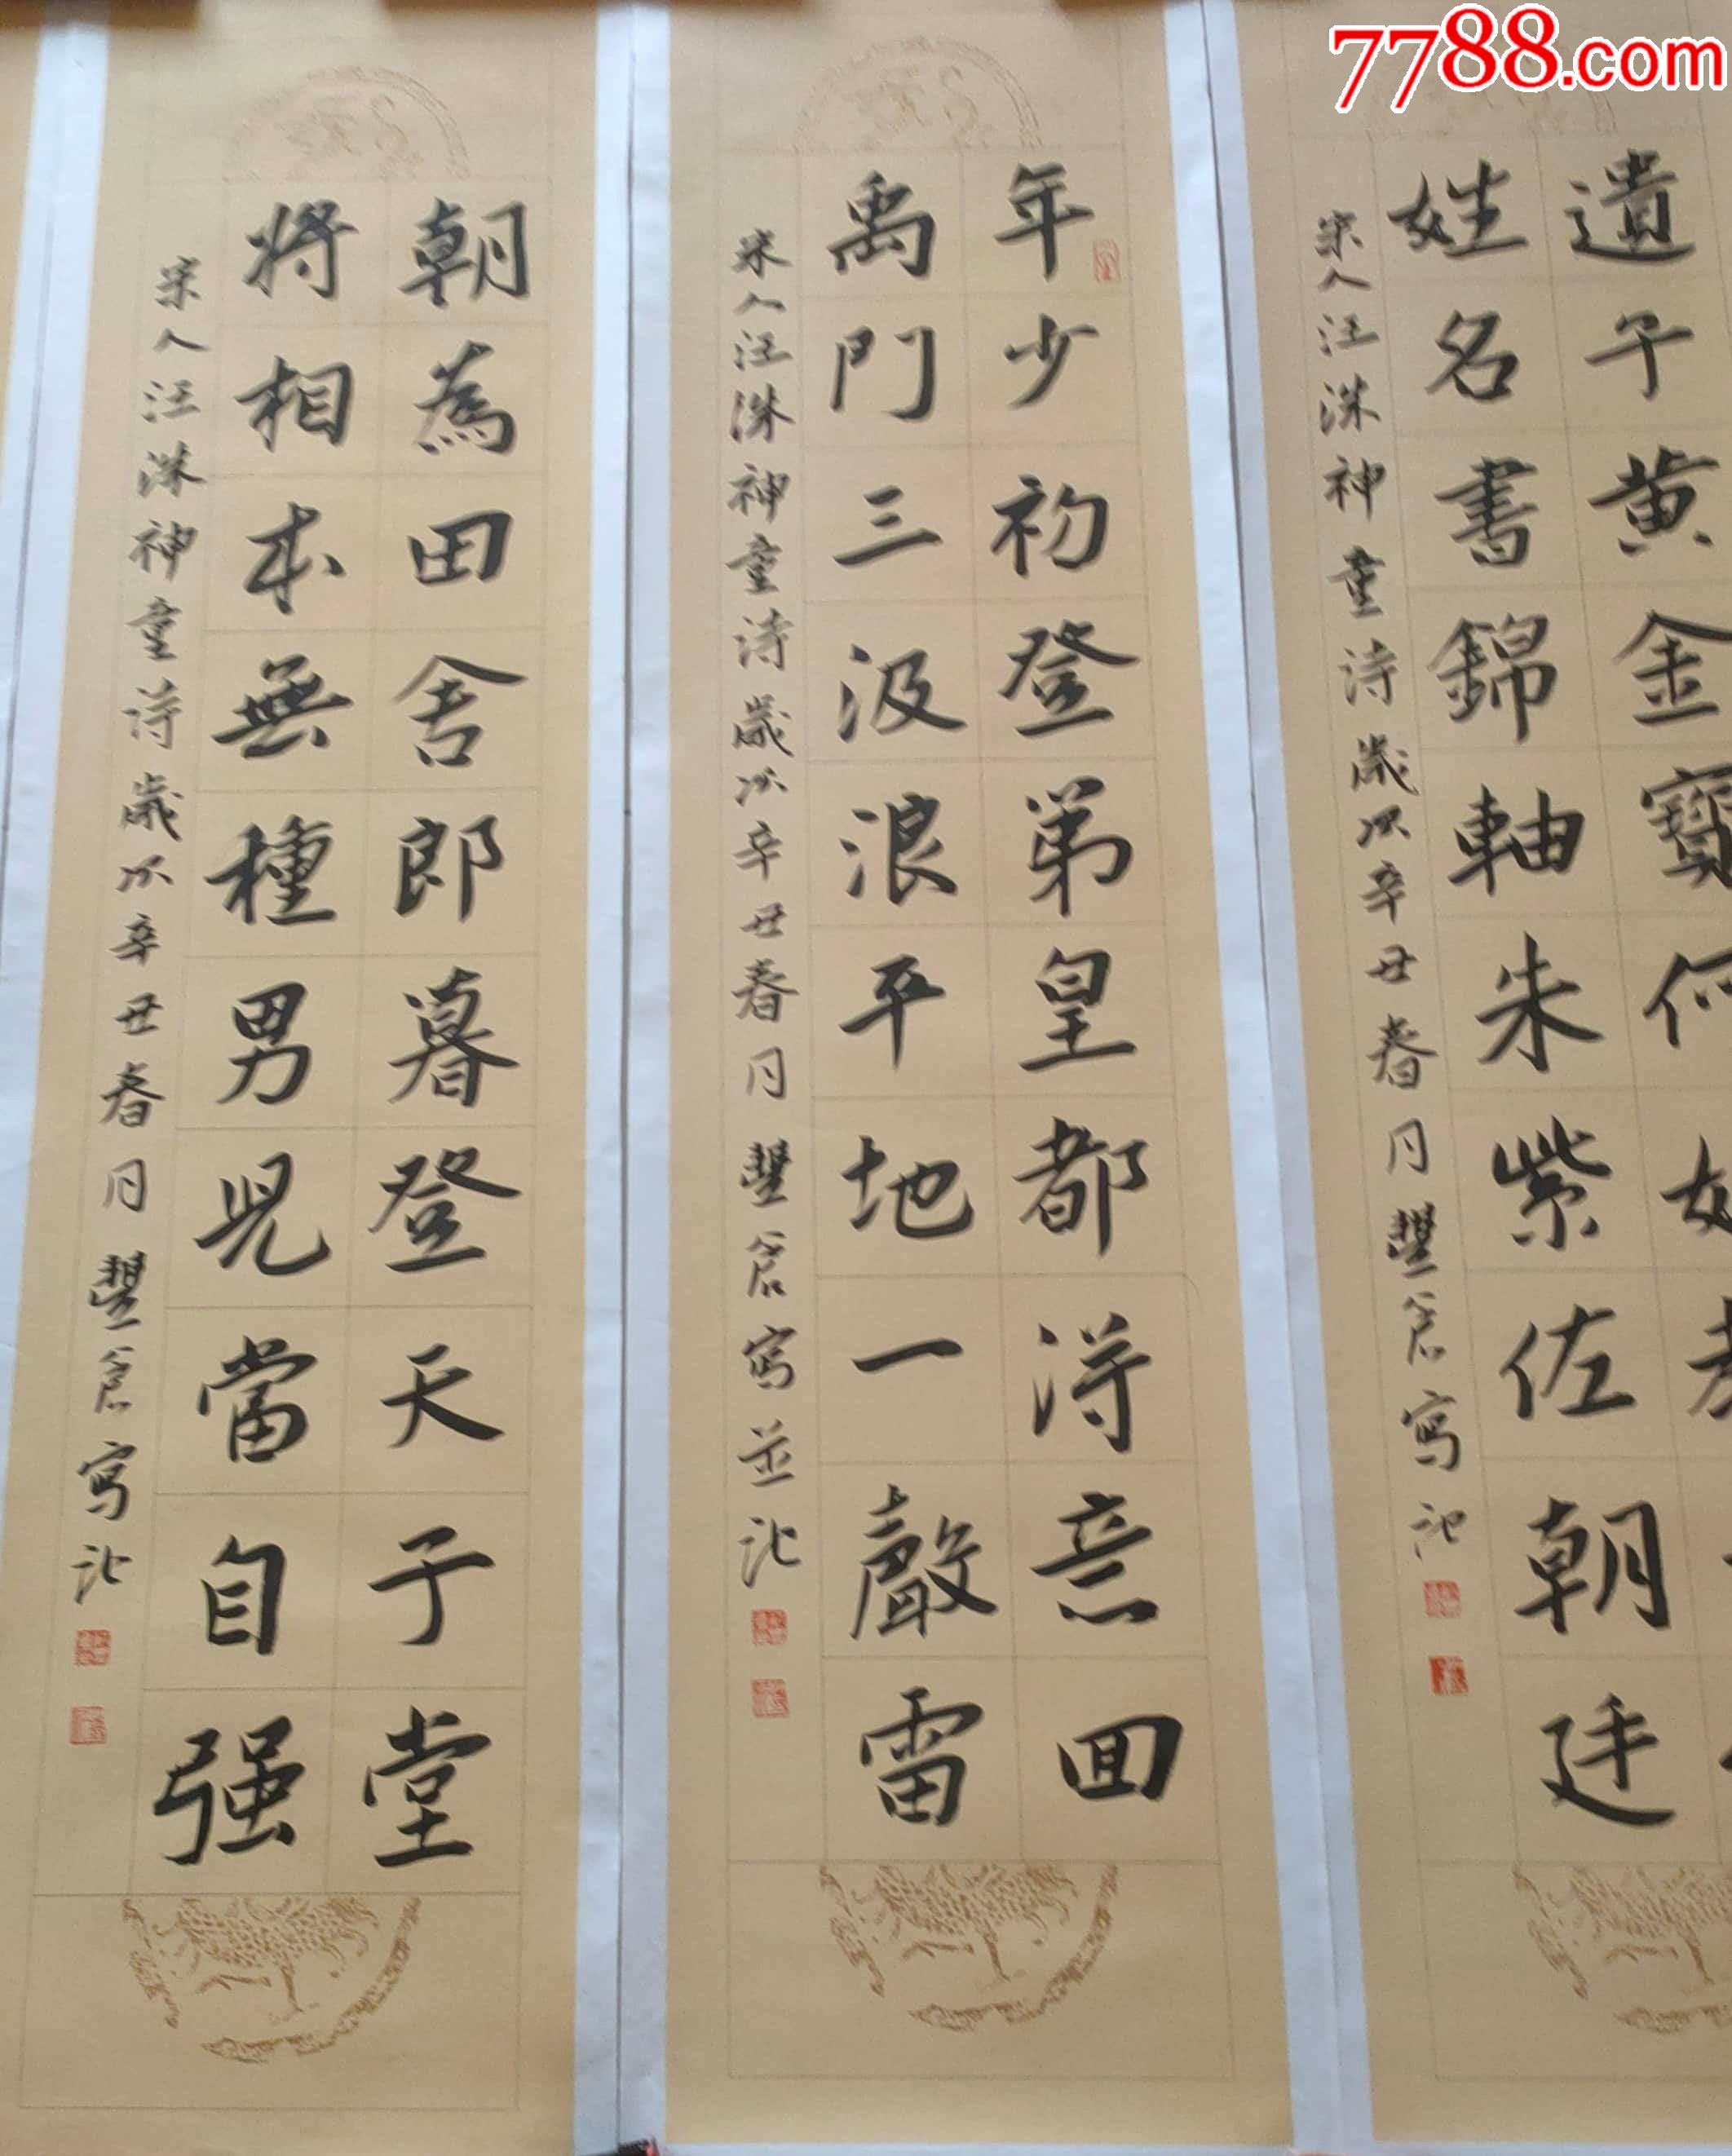 7788.com
遺子黄金寶何如教
姓名書錦軸朱紫佐朝廷
宋人汪洙神童詩歲次辛丑春月豐倉寫記
年少初登弟皇都得意囬
禹門三汲浪平地一聲雷
宋人汪洙神童詩歲次辛丑春月豐倉寫並記
朝為田舍郎暮登天子堂
將相本無種男兒當自强
宋人汪洙神童詩歲次辛丑春月豐倉寫記